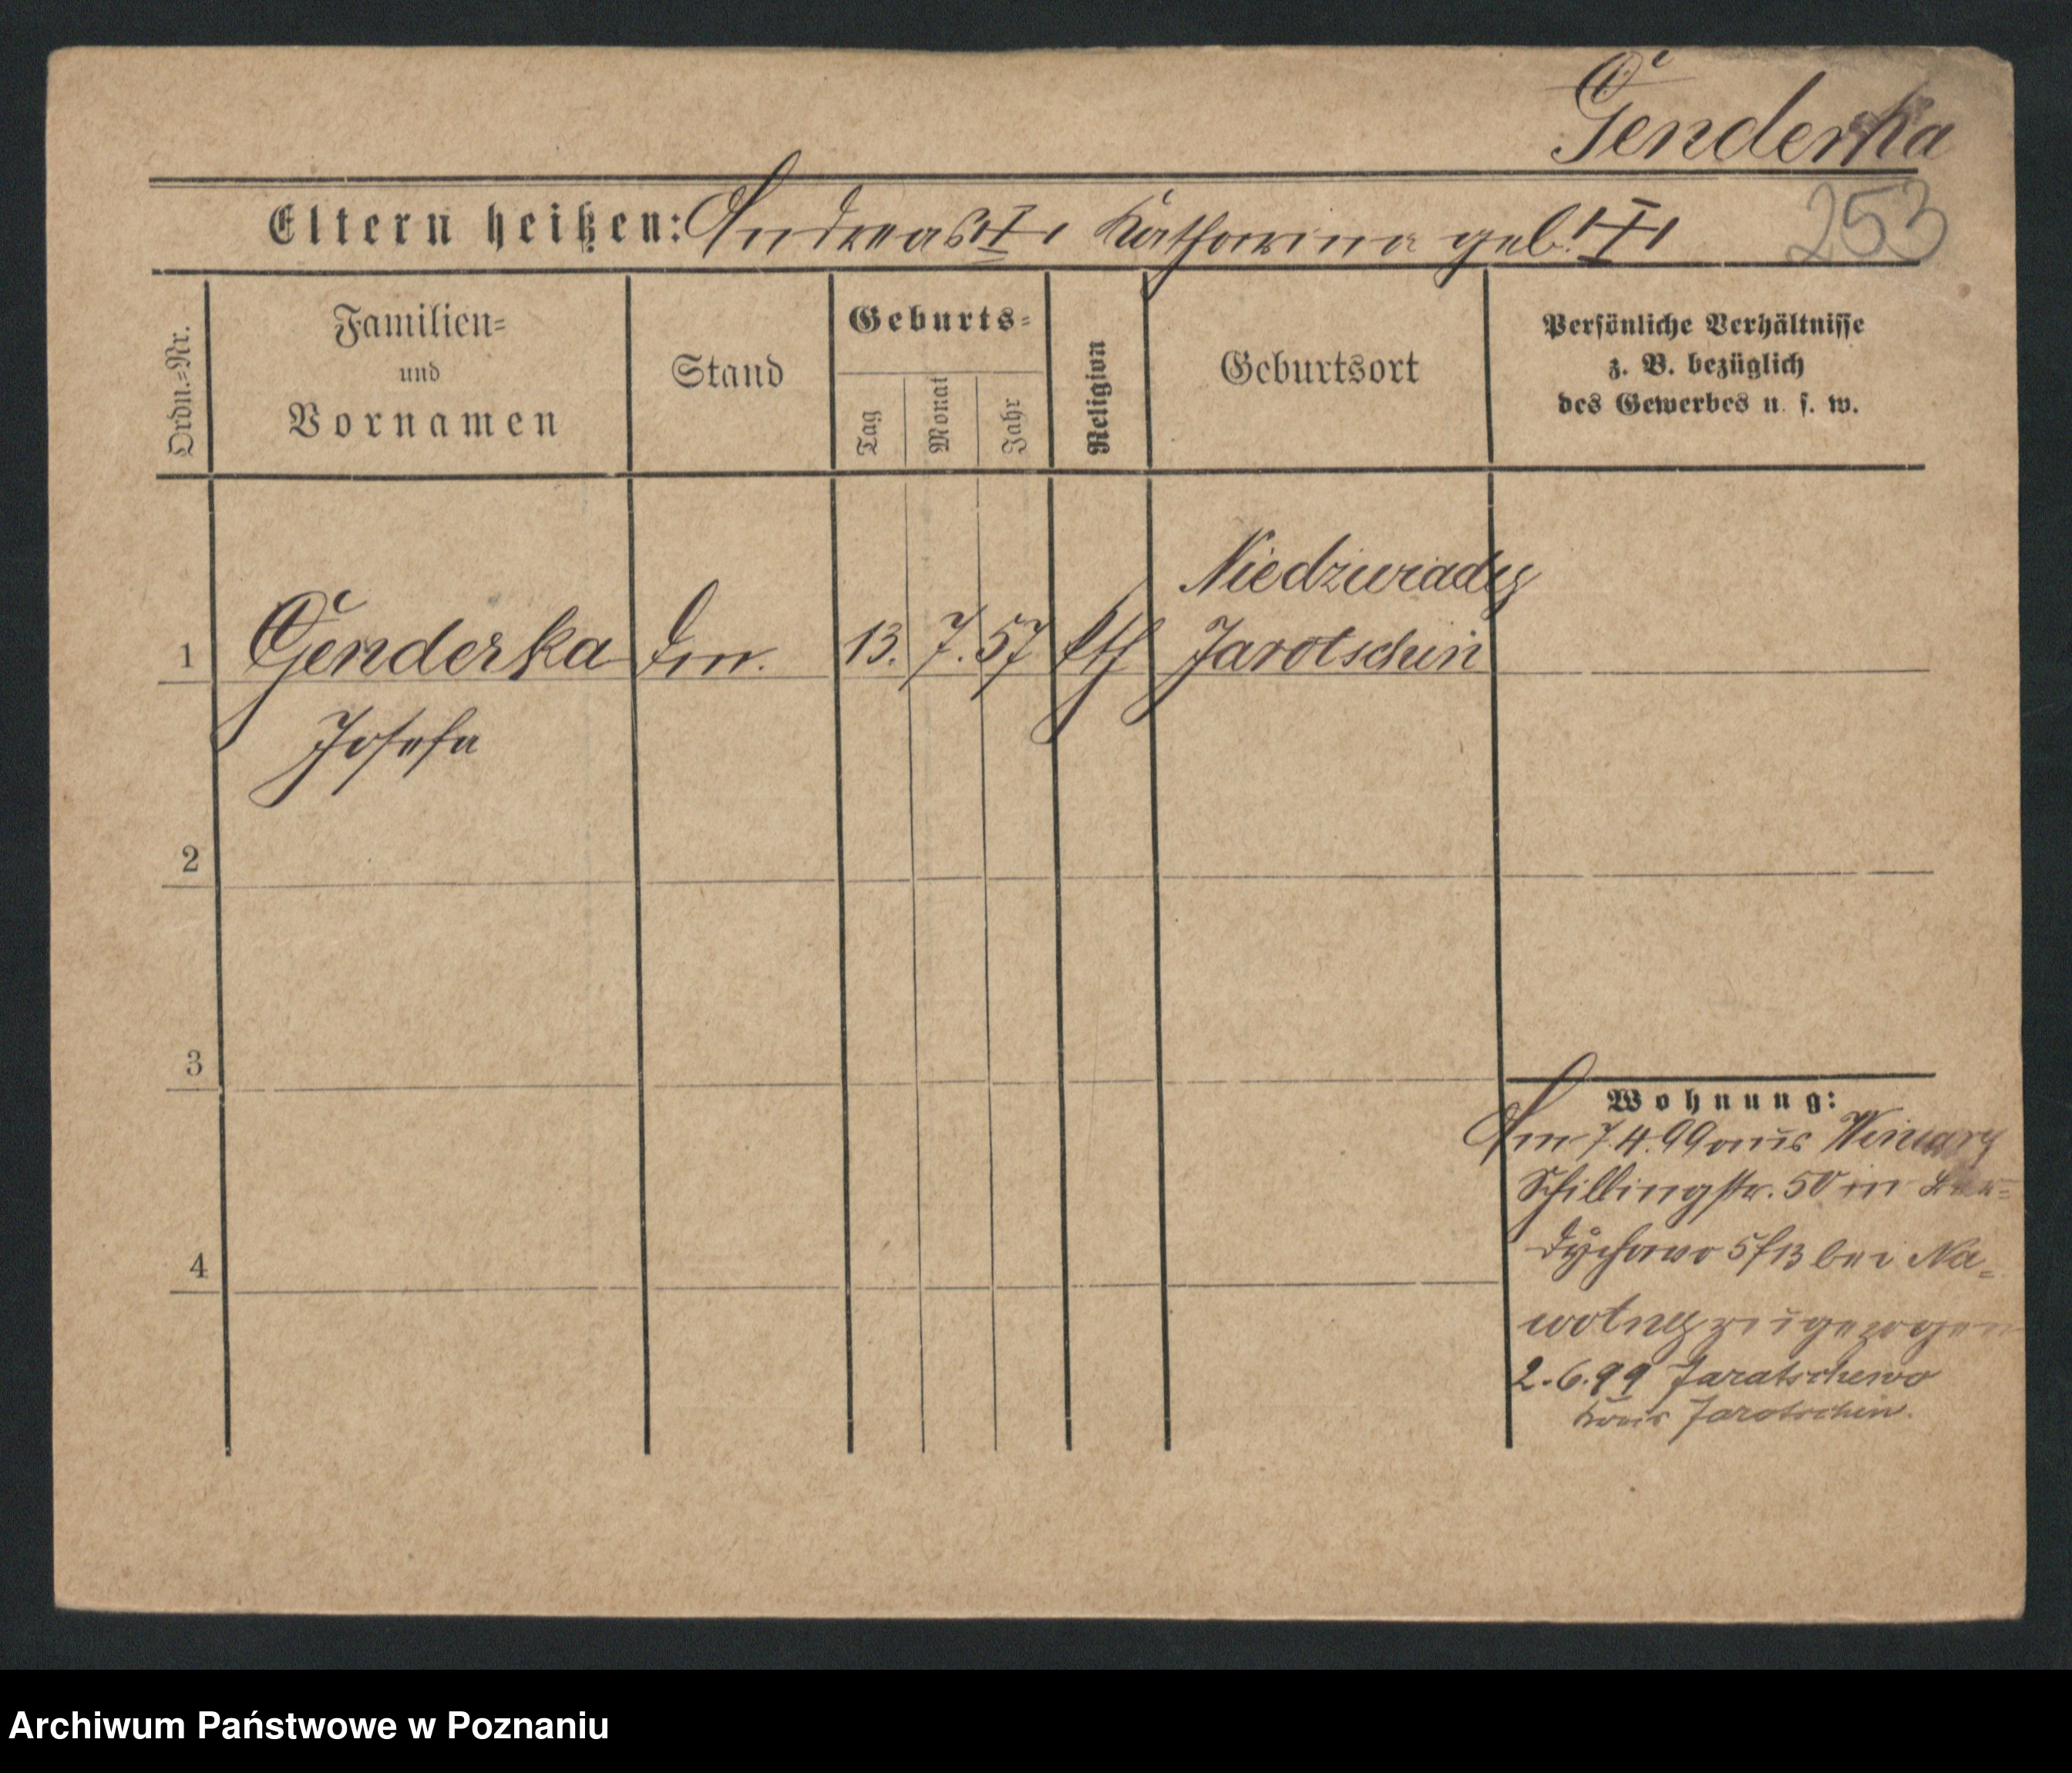 Genderka
Eltern heißen: Andreas Katharina geb.
253
Ordn.=Nr.
Familien=
und
Vornamen
Stand
Geburts=
Tag
Monat
Jahr
Religion
Geburtsort
Persönliche Verhältnisse
z. B. bezüglich
des Gewerbes u. s. w.
Niedzwiady
1 Genderka 13. 7. 57 kth Jarotschin
Josefa
2
3
4
Wohnung:
Am 7.4.99 aus Winiary
Schillingstr. 50 in
bei Na=
zugezogen
2.6.99 Jaratschewo
Kreis Jarotschin.
Archiwum Państwowe w Poznaniu